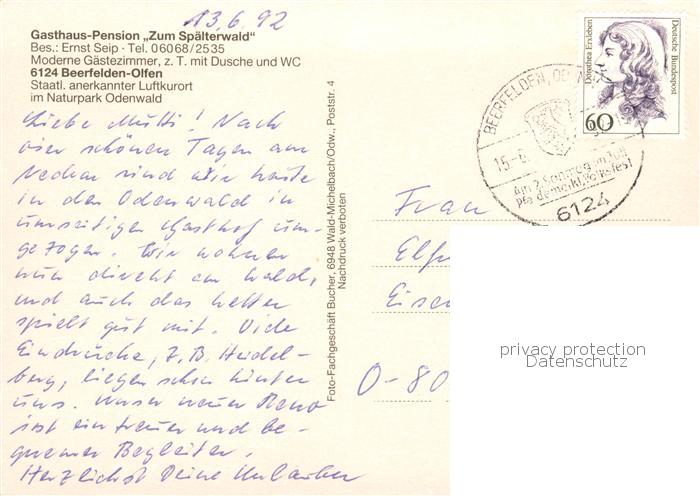 13.6.92
Gasthaus-Pension „Zum Spälterwald"
Bes.: Ernst Seip · Tel. 06068/2535
Moderne Gästezimmer, z. T. mit Dusche und WC
6124 Beerfelden-Olfen
Staatl. anerkannter Luftkurort
im Naturpark Odenwald
Liebe Mutti! Nach
vier schönen Tagen am
Neckar sind wir heute
in den Odenwald in
umseitigen Gasthof um-
gezogen. Wir wohnen
nun direkt am Wald,
und auch das Wetter
spielt gut mit. Viele
Eindrücke, z.B. Heidel-
berg, liegen schon hinter
uns. Unser neuer Reno
ist ein treuer und be-
quemer Begleiter.
Herzlichst Deine Urlauber
Foto-Fachgeschäft Bucher, 6948 Wald-Michelbach/Odw., Poststr. 4
Nachdruck verboten
Dorothea Erxleben
Deutsche Bundespost
60
BEERFELDEN, OD
15.-6
Am 2. Sonntag im Juli
Pferdemarkt Volksfest
6124
Frau
Elf
Eisen
O-80
privacy protection
Datenschutz